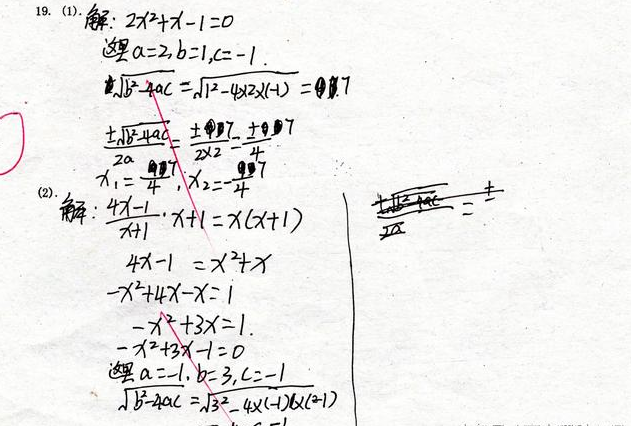 19. (1). 解: 2x²+x-1=0
这里 a=2, b=1, c=-1.
√b²-4ac = √1²-4×2×(-1) = 7
±√b²-4ac / 2a = ±7 / 2×2 = ±7 / 4
x₁= 7/4, x₂=-7/4
(2). 解: 4x-1 / x+1 · x+1 = x(x+1)
4x-1 = x²+x
-x²+4x-x=1
-x²+3x=1.
-x²+3x-1=0
这里 a=-1, b=3, c=-1
√b²-4ac = √3²-4×(-1)×(-1)
±√b²-4ac / 2a = ±